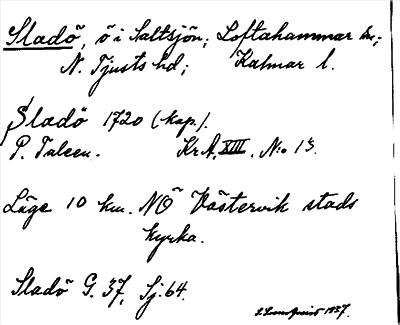 Sladö, ö i Saltsjön; Loftahammar sn;
N. Tjusts hd; Kalmar l.
Sladö 1720 (kap.).
P. Tuleen. Kr A, XIII, N:o 13.
Läge 10 km. NÖ Västervik stads
kyrka.
Sladö G. 37, Sj. 64.
1927.